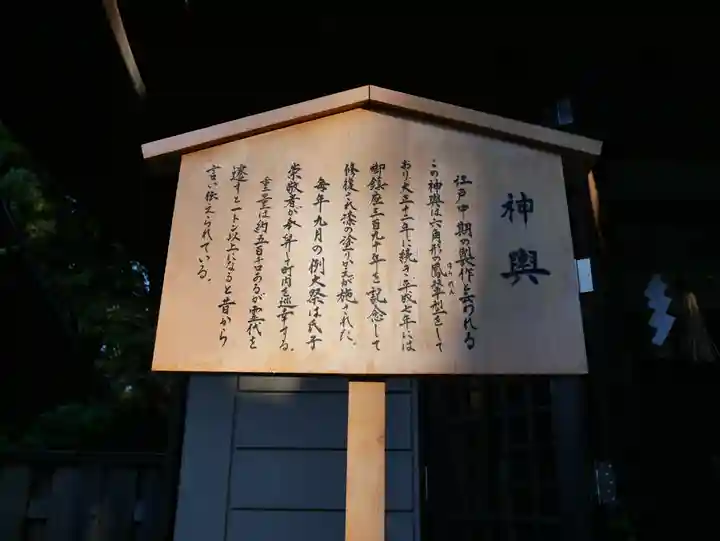 神輿
江戸中期の製作と云われる
この神輿は六角形の鳳輦型をして
ほうれん
おり大正十二年に続き、平成七年には
御鎮座三百九十年を記念して
修復され漆の塗りかえが施された。
毎年九月の例大祭は氏子
崇敬者が奉舁して町内を巡幸する。
重量は約五百キロあるが霊代を
遷すと一トン以上になると昔から
言い伝えられている。